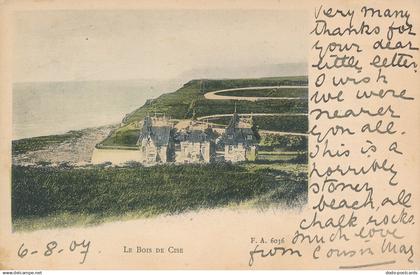 Very many
thanks for
your dear
little letter
I wish
we were
nearer
you all.
This is a
horribly
stoney
beach, all
chalk rocks
much love
from Cousin May
6-8.07
LE BOIS DE CISE
F. A. 6036